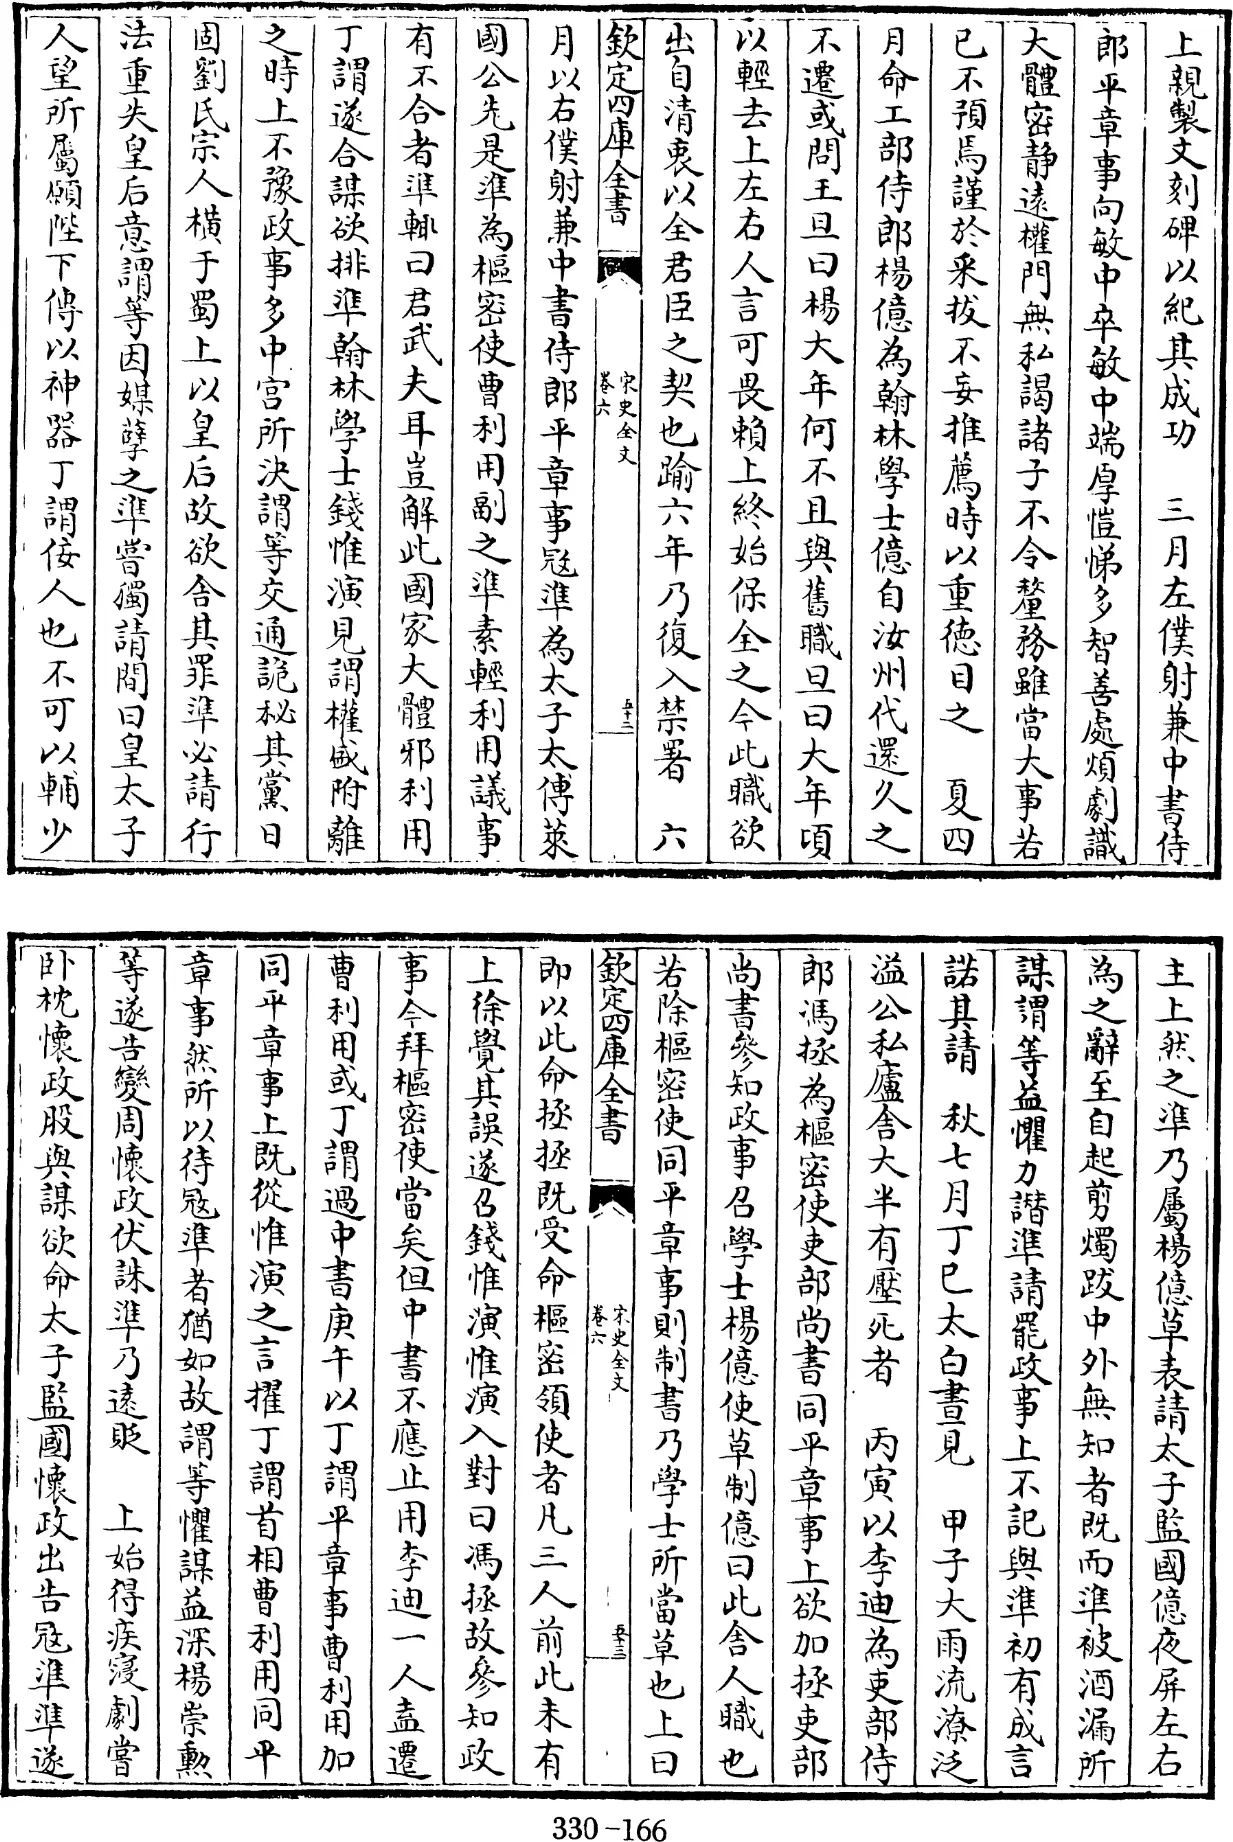 上親製文刻碑以紀其成功　三月左僕射兼中書侍
郎平章事向敏中卒敏中端厚愷悌多智善處煩劇識
大體密静逺權門無私謁諸子不令釐務雖當大事若
已不預焉謹於采拔不妄推薦時以重徳目之　夏四
月命工部侍郎楊億為翰林學士億自汝州代還久之
不遷或問王旦曰楊大年何不且與舊職旦曰大年頃
以輕去上左右人言可畏賴上終始保全之今此職欲
出自清衷以全君臣之契也踰六年乃復入禁署　六
欽定四庫全書
宋史全文
卷六
五十二
月以右僕射兼中書侍郎平章事冦準為太子太傅萊
國公先是準為樞密使曹利用副之準素輕利用議事
有不合者準輒曰君武夫耳豈解此國家大體邪利用
丁謂遂合謀欲排準翰林學士錢惟演見謂權盛附離
之時上不豫政事多中宫所決謂等交通詭秘其黨日
固劉氏宗人横于蜀上以皇后故欲舍其罪準必請行
法重失皇后意謂等因媒孽之準嘗獨請間曰皇太子
人望所屬願陛下傳以神器丁謂佞人也不可以輔少
主上然之準乃屬楊億草表請太子監國億夜屏左右
為之辭至自起剪燭跋中外無知者既而準被酒漏所
謀謂等益懼力譖準請罷政事上不記與準初有成言
諾其請　秋七月丁巳太白晝見　甲子大雨流潦泛
溢公私廬舍大半有壓死者　丙寅以李迪為吏部侍
郎馮拯為樞密使吏部尚書同平章事上欲加拯吏部
尚書參知政事召學士楊億使草制億曰此舍人職也
若除樞密使同平章事則制書乃學士所當草也上曰
欽定四庫全書
宋史全文
卷六
五十三
即以此命拯拯既受命樞密領使者凡三人前此未有
上徐覺其誤遂召錢惟演惟演入對曰馮拯故參知政
事今拜樞密使當矣但中書不應止用李迪一人盍遷
曹利用或丁謂過中書庚午以丁謂平章事曹利用加
同平章事上既從惟演之言擢丁謂首相曹利用同平
章事然所以待冦準者猶如故謂等懼謀益深楊崇勲
等遂告變周懐政伏誅準乃逺貶　上始得疾寖劇嘗
卧枕懐政股與謀欲命太子監國懐政出告冦準準遂
330-166